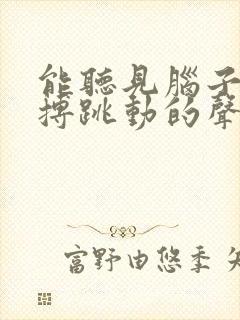 能聽見腦子
搏跳動的聲
富野由悠季